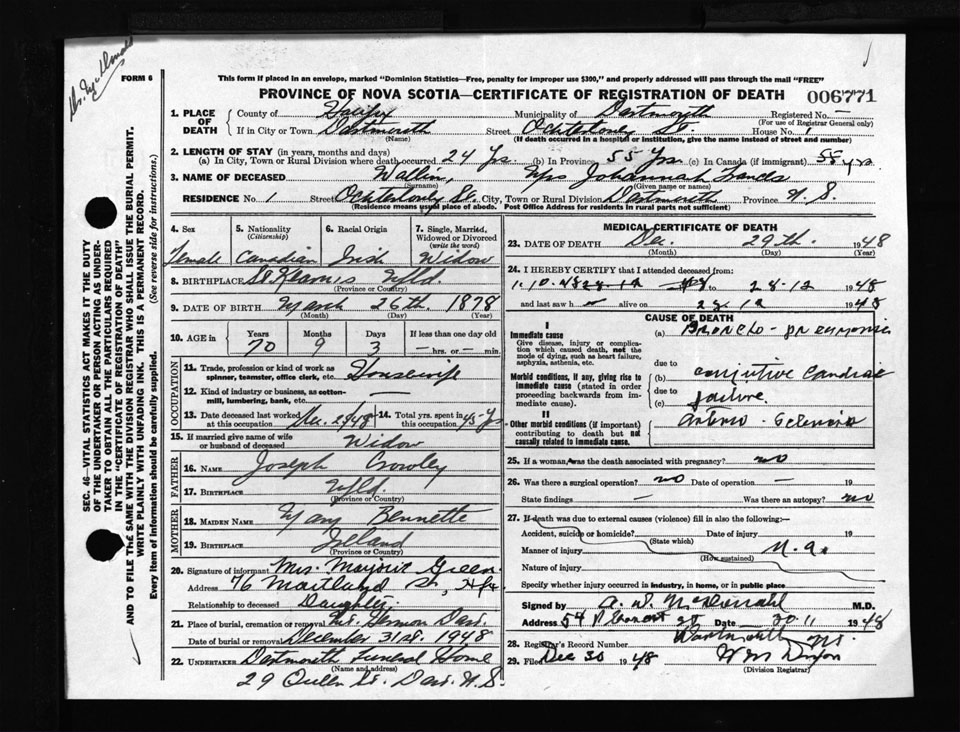 FORM 6
This form if placed in an envelope, marked "Dominion Statistics—Free, penalty for improper use $300," and properly addressed will pass through the mail "FREE"
PROVINCE OF NOVA SCOTIA—CERTIFICATE OF REGISTRATION OF DEATH 006771
1. PLACE OF DEATH County of Halifax Municipality of Dartmouth Registered No. —
(For use of Registrar General only)
If in City or Town Dartmouth Street Ochterloney St. House No. 1
(Name) (If death occurred in a hospital or institution, give the name instead of street and number)
2. LENGTH OF STAY (in years, months and days)
(a) In City, Town or Rural Division where death occurred 24 Yrs. (b) In Province 55 Yrs. (c) In Canada (if immigrant) 55 yrs
3. NAME OF DECEASED Wallin, Mrs Johannah
(Surname) (Given name or names)
RESIDENCE No. 1 Street Ochterloney St. City, Town or Rural Division Dartmouth Province N.S.
(Residence means usual place of abode. Post Office Address for residents in rural parts not sufficient)
4. Sex Female
5. Nationality (Citizenship) Canadian
6. Racial Origin Irish
7. Single, Married, Widowed or Divorced (write the word) Widow
8. BIRTHPLACE Nfld.
(Province or Country)
9. DATE OF BIRTH March 26th 1878
(Month) (Day) (Year)
10. AGE in Years 70 Months 9 Days 3 If less than one day old — hrs. or — min.
OCCUPATION
11. Trade, profession or kind of work as spinner, teamster, office clerk, etc. Housewife
12. Kind of industry or business, as cotton-mill, lumbering, bank, etc. —
13. Date deceased last worked at this occupation Dec. 2948 14. Total yrs. spent in this occupation 45 Yrs
15. If married give name of wife or husband of deceased Widow
FATHER
16. NAME Joseph Crowley
17. BIRTHPLACE Nfld.
(Province or Country)
MOTHER
18. MAIDEN NAME Mary Bennette
19. BIRTHPLACE Nfland
(Province or Country)
20. Signature of informant Mrs. Marjorie Green.
Address 76 Maitland St, Hfx
Relationship to deceased Daughter.
21. Place of burial, cremation or removal Mt. Hermon Dart.
Date of burial or removal December 31st. 1948
22. UNDERTAKER Dartmouth Funeral Home
(Name and address)
29 Queen St. Dart. N.S.
MEDICAL CERTIFICATE OF DEATH
23. DATE OF DEATH Dec. 29th. 1948
(Month) (Day)
24. I HEREBY CERTIFY that I attended deceased from:
to 28-12 1948
and last saw h alive on 28.12 1948
CAUSE OF DEATH
I
Immediate cause
Give disease, injury or complication which caused death, not the mode of dying, such as heart failure, asphyxia, asthenia, etc.
(a) Broncho-pneumonia
due to
Morbid conditions, if any, giving rise to immediate cause (stated in order proceeding backwards from immediate cause).
(b) congestive Cardiac
due to
(c) failure.
II
Other morbid conditions (if important) contributing to death but not causally related to immediate cause.
Arterio-sclerosis
25. If a woman, was the death associated with pregnancy? no
26. Was there a surgical operation? no Date of operation — 19
State findings — Was there an autopsy? no
27. If death was due to external causes (violence) fill in also the following:—
Accident, suicide or homicide? Date of injury 19
(State which)
Manner of injury n.a.
(How sustained)
Nature of injury
Specify whether injury occurred in industry, in home, or in public place
Signed by M.D.
Address 54 Date 30 11 1948
Dartmouth NS.
28. Registrar's Record Number
29. Filed Dec 30 1948
(Division Registrar)
SEC. 46—VITAL STATISTICS ACT MAKES IT THE DUTY OF THE UNDERTAKER OR PERSON ACTING AS UNDERTAKER TO OBTAIN ALL THE PARTICULARS REQUIRED IN THE "CERTIFICATE OF REGISTRATION OF DEATH" AND TO FILE THE SAME WITH THE DIVISION REGISTRAR WHO SHALL ISSUE THE BURIAL PERMIT.
WRITE PLAINLY WITH UNFADING INK. THIS IS A PERMANENT RECORD.
Every item of information should be carefully supplied. (See reverse side for instructions.)